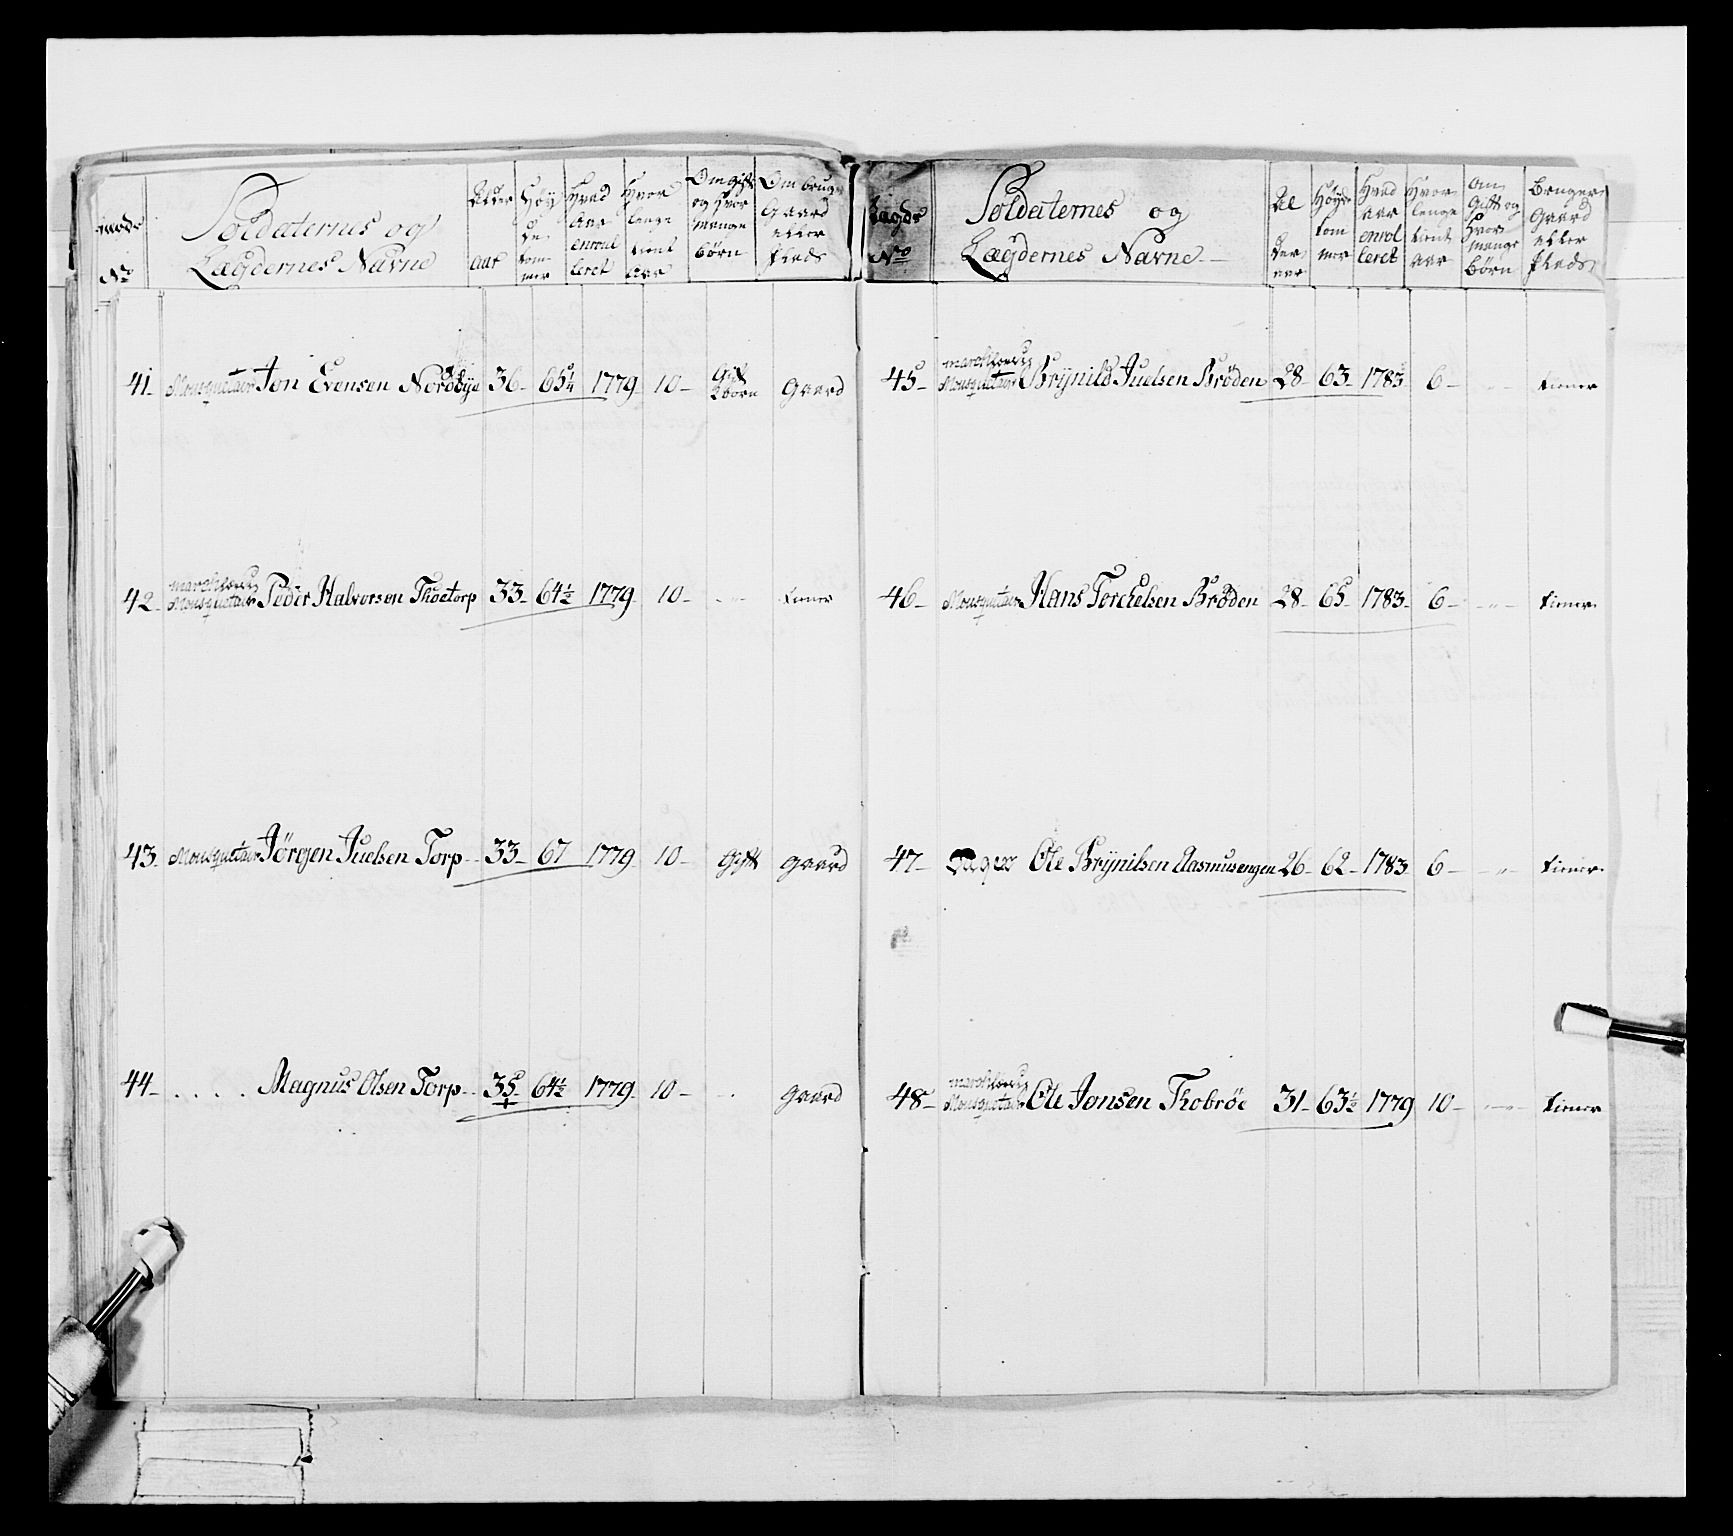 Soldaternes og
Lægdernes Navne
No
Alder
Aar
Høy
de
tom
mer
Hvad
Aar
enroul
leret
Hvor
lenge
tient
Aar
Om gift
og Hvor
mange
børn
Om bruger
Gaard
eller
Plads
41. Mousqueteer Jon Evensen Nordbye 36 65 1/4 1779 10 Gift 2 børn Gaard
42 marchfærdig
Mousqueteer Peder Halvorsen Thoetorp 33 64 1/2 1779 10 - tiener
43 Mousqueteer Jörgen Juelsen Torp 33 67 1779 10 Gift Gaard
44 .... Magnus Olsen Torp 35 64 1/2 1779 10 - Gaard
Lægds
No
Soldaternes og
Lægdernes Navne
Al
der
aar
Høyde
tom
mer
Hvad
aar
enrol
leret
Hvor
lenge
tient
aar
Om
Gift og
Hvor
mange
børn
Bruger
Gaard
eller
Plads
45 marchfærdig
Mousqueteer Brÿnild Juelsen Brøden 28 63 1783 6 - tiener
46 Mousqueteer Hans Torchelsen Brøden 28 65 1783 6 - tiener
47 Jæger Ole Brÿnilsen Aasmusengen 26 62 1783 6 - tiener
48 marchfærdig
Mousqueteer Ole Jonsen Thobröe 31 63 1/2 1779 10 - tiener